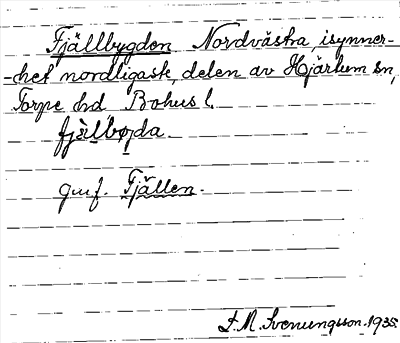 Fjällbygden Nordvästra, isynner-
-het nordligaste, delen av Hjärtum sn,
Torpe hd Bohusl.
fjälbøjda.
jmf. Fjällen.
F. M. Svenungsson. 1935.